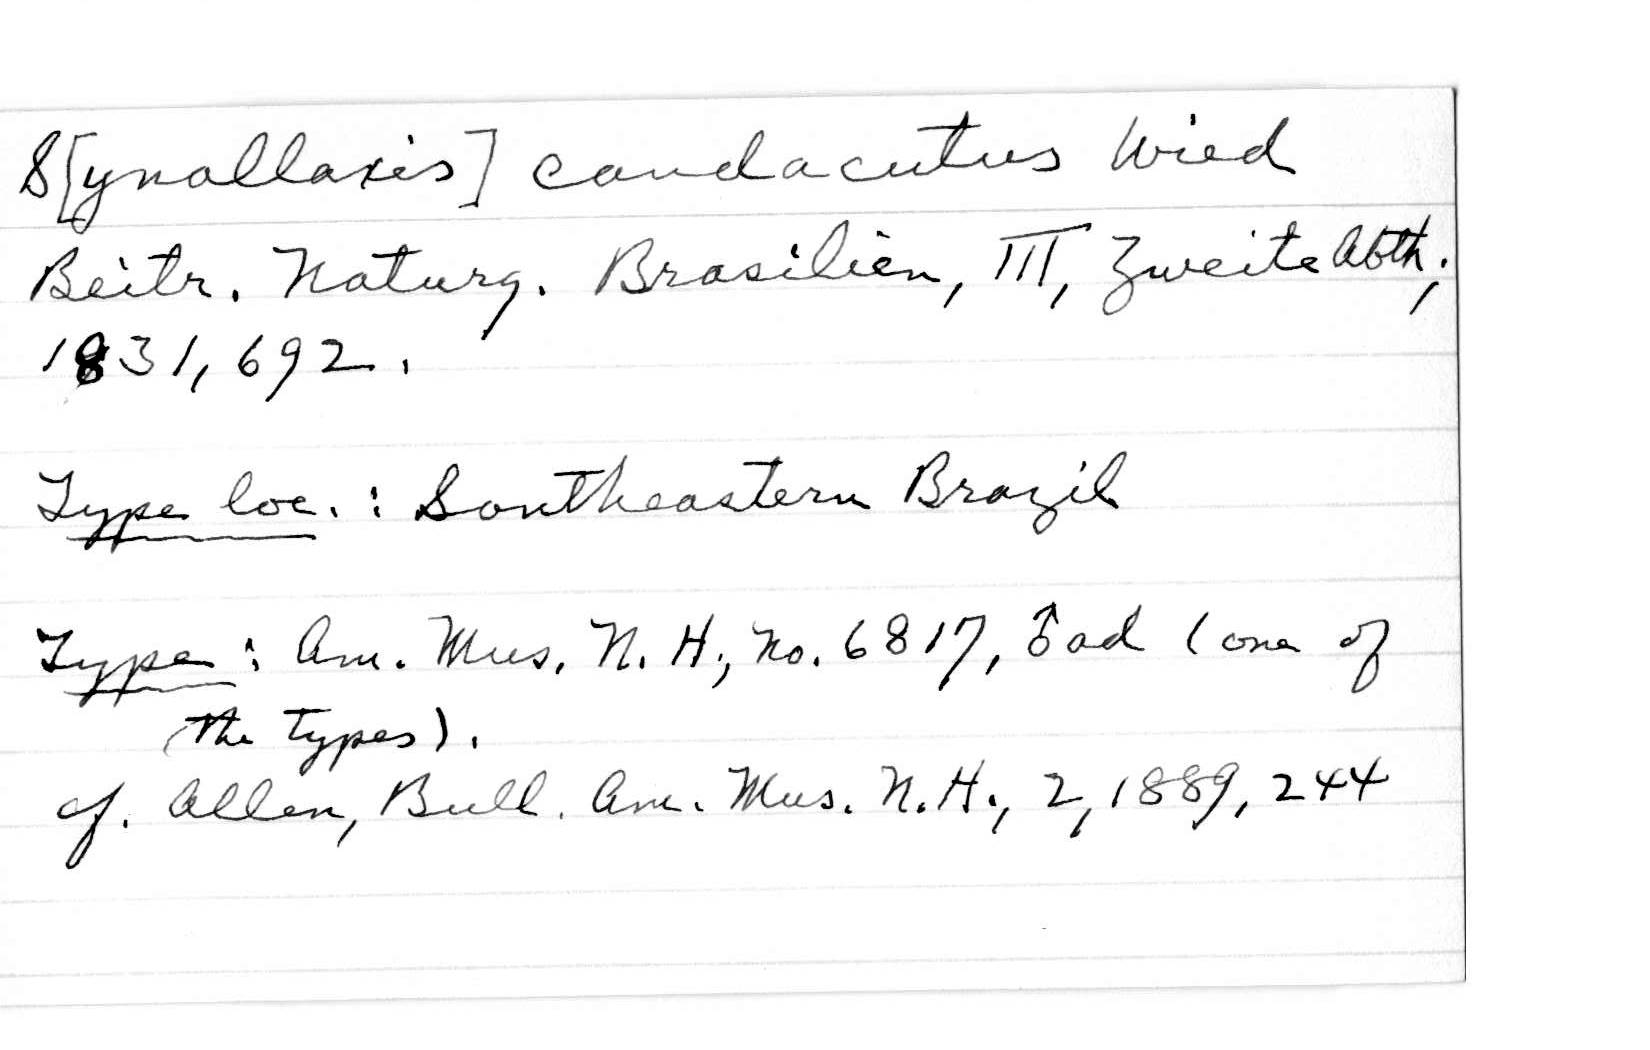 S[ynallaxis] caudacutus Wied
Beitr. Naturg. Brasilien, III, Zweite Abth.,
1831, 692.
Type loc.: Southeastern Brazil
Type: Am. Mus. N. H., No. 6817, ♂ ad (one of
the types).
cf. Allen, Bull. Am. Mus. N.H., 2, 1889, 244